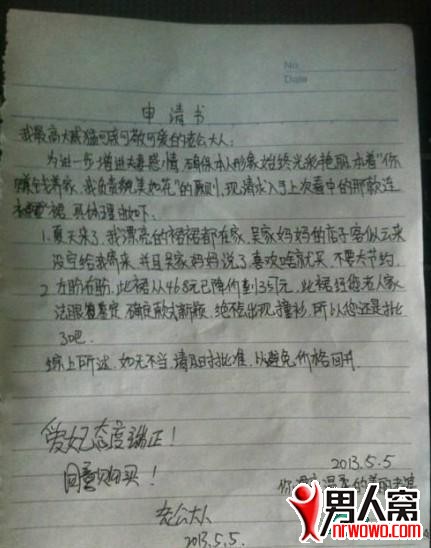 No
Date
申请书
我最高大威猛可感可敬可爱的老公大人:
为进一步增进夫妻感情,确保本人形象始终光彩艳丽,本着“你
赚钱养家,我负责貌美如花”的原则,现请求入手上次看中的那款连
裙,具体理由如下:
1.夏天来了,我漂亮的裙裙都在家,吴家妈妈的店子客似云来
没空给我寄来,并且吴家妈妈说了喜欢啥就买,不要太节约.
2.左盼右盼,此裙从468元已降价到357元,此裙经您老人家
法眼鉴定,确定款式新颖,绝不会出现“撞衫”,所以您还是批
3吧.
综上所述,如无不当,请及时批准,以避免价格回升.
2013.5.5
你温柔的美丽老婆
爱妃态度端正!
同意购买!
老公大人
2013.5.5.
男人窝
nrwowo.com